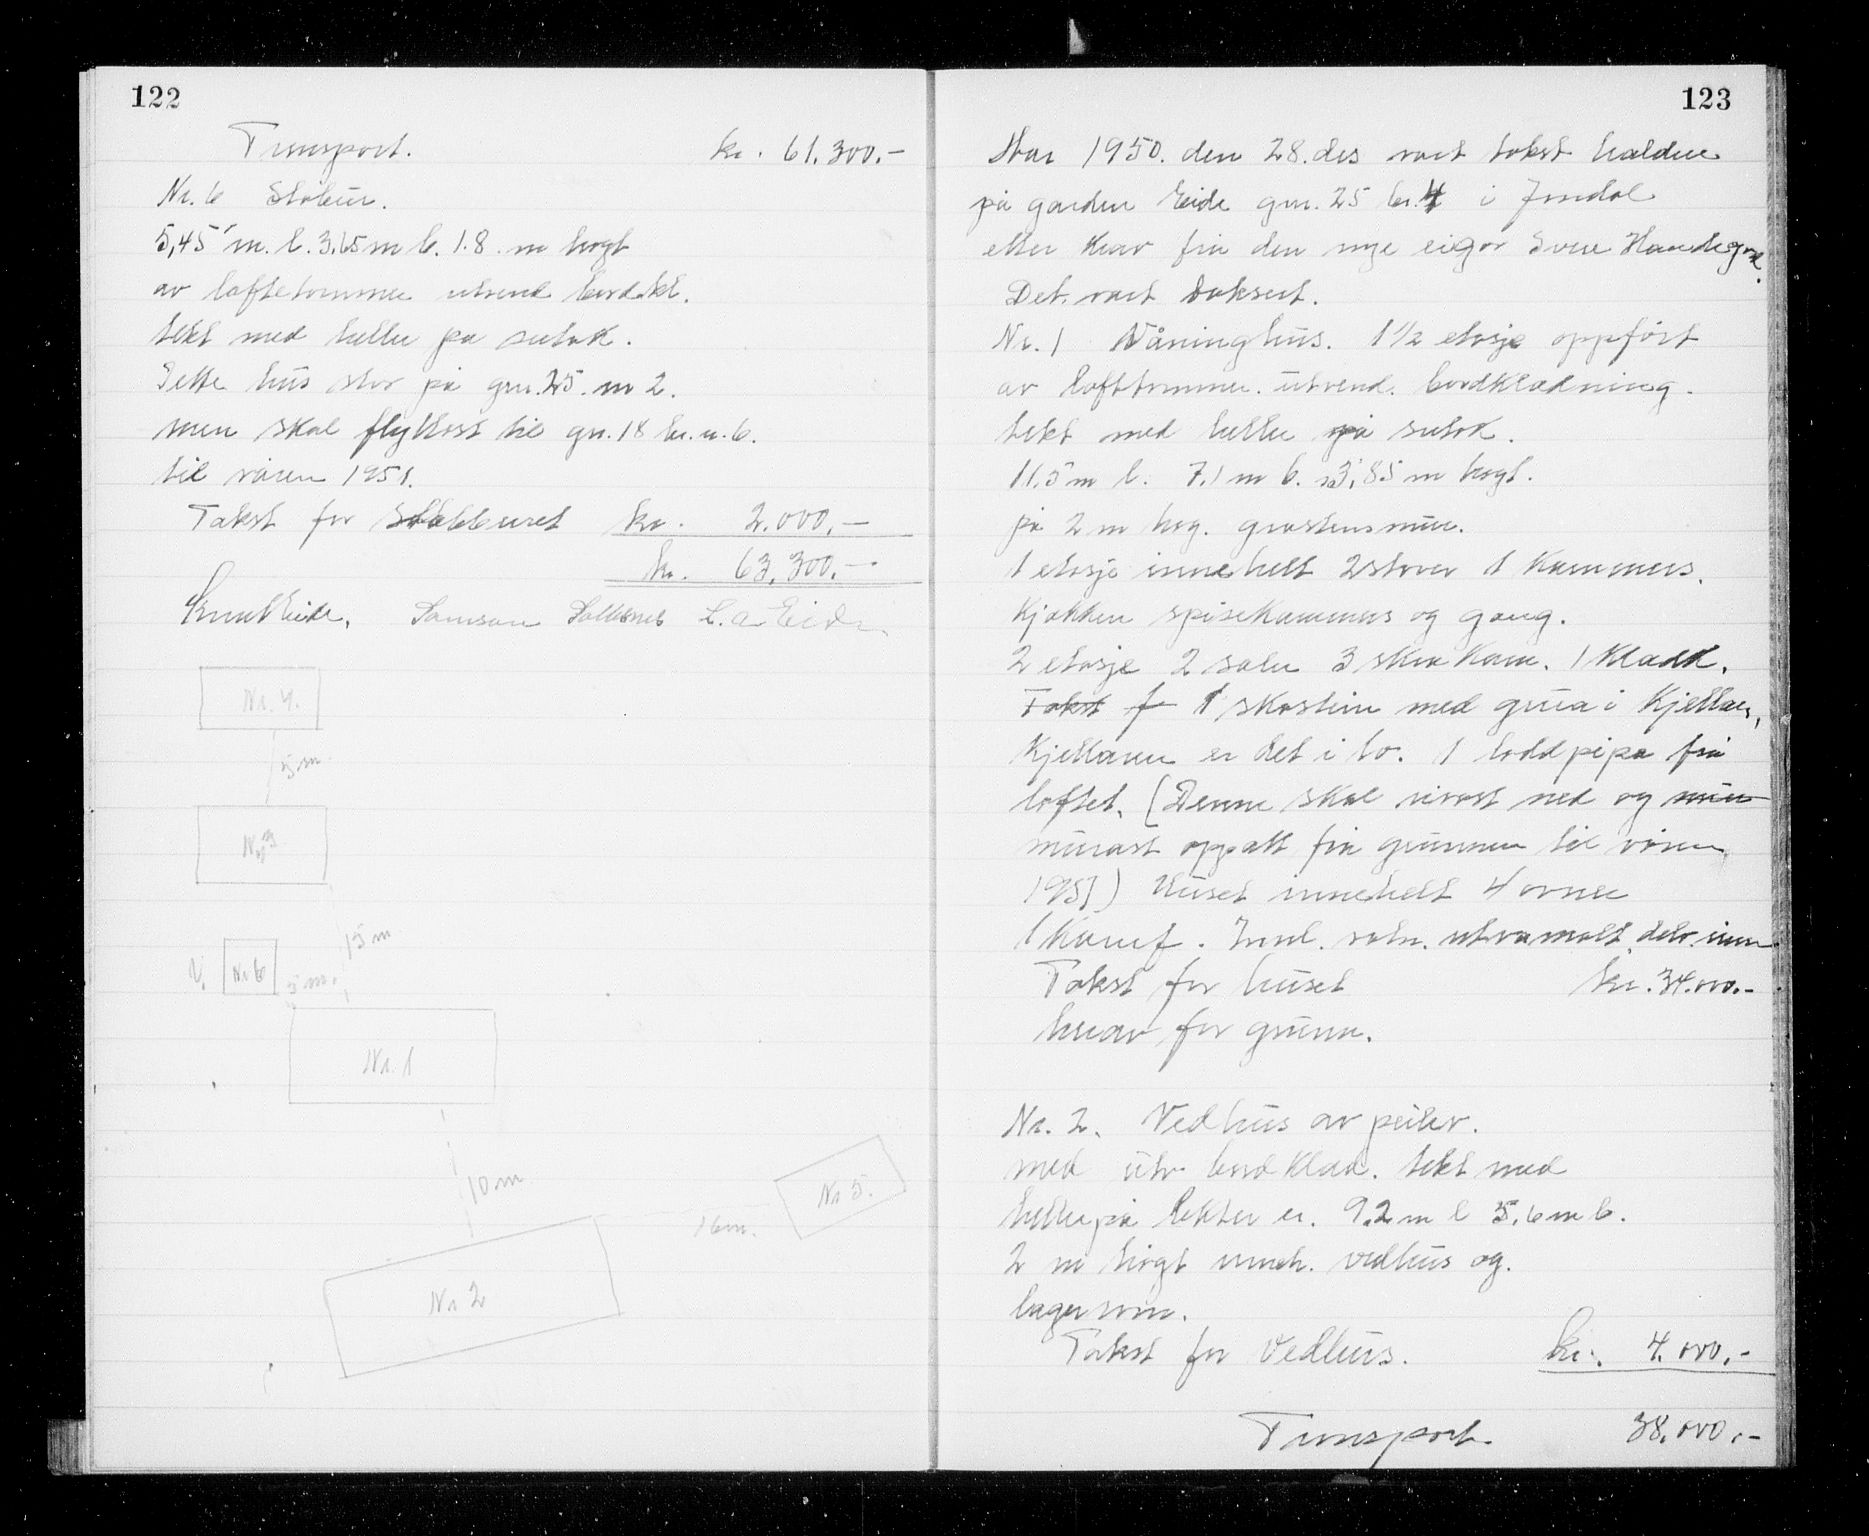 122
Transport. kr. 61.300.-
Nr. 6 Stabur.
5,45 m. l. 3,65 m b. 1.8. m høgt
av laftetømmer utvend bordkl.
tekt med heller på sutak.
Dette hus står på gnr. 25. m 2.
men skal flyttast til gn. 18 br. n. 6.
til våren 1951.
Takst for Stabburet kr. 2.000,-
kr. 63,300.-
Knut Eide. Samson L. A. Eide
Nr. 4.
5 m.
Nr. 3
15 m
V. Nr 6
5 m.
Nr. 1
10 m
Nr 5.
16 m.
Nr 2
123
År 1950. den 28. des vart takst halden
på garden Eide gnr. 25 br. 4 i Jondal
etter krav frå den nye eigar Sven
Det vart taksert.
Nr. 1 Våninghus. 1 1/2 etasje oppført
av lafttømmer. utvend. bordkledning.
tekt med heller på sutak.
11.5 m l. 7.1 m b. 3,85 m høgt.
på 2 m høg. gråsteinsmur.
1 etasje innehelt 2 stover 1 kammers.
kjøkken spisekammers og gang.
2 etasje 2 saler 3 skra kam. 1 kladd.
Takst f 1 skostein med grua i kjellar,
kjellaren er delt i to. 1 loddpipa frå
loftet. (Denne skal rivast ned og mur
murast oppatt frå grunnen til våren
1951) Huset innehelt 4 ovner
1 Komf. Innl. vatn. utv. malt. delv. inn
Takst for huset kr. 34.000.-
herav for grunn.
Nr. 2. Vedhus av peiler.
med utv bordklæd. tekt med
heller på lekter er. 9.2 m l 5,6 m b.
2 m høgt inneh. vedhus og
lagerrom.
Takst for Vedhus. kr. 4.000.-
Transport 38,000.-